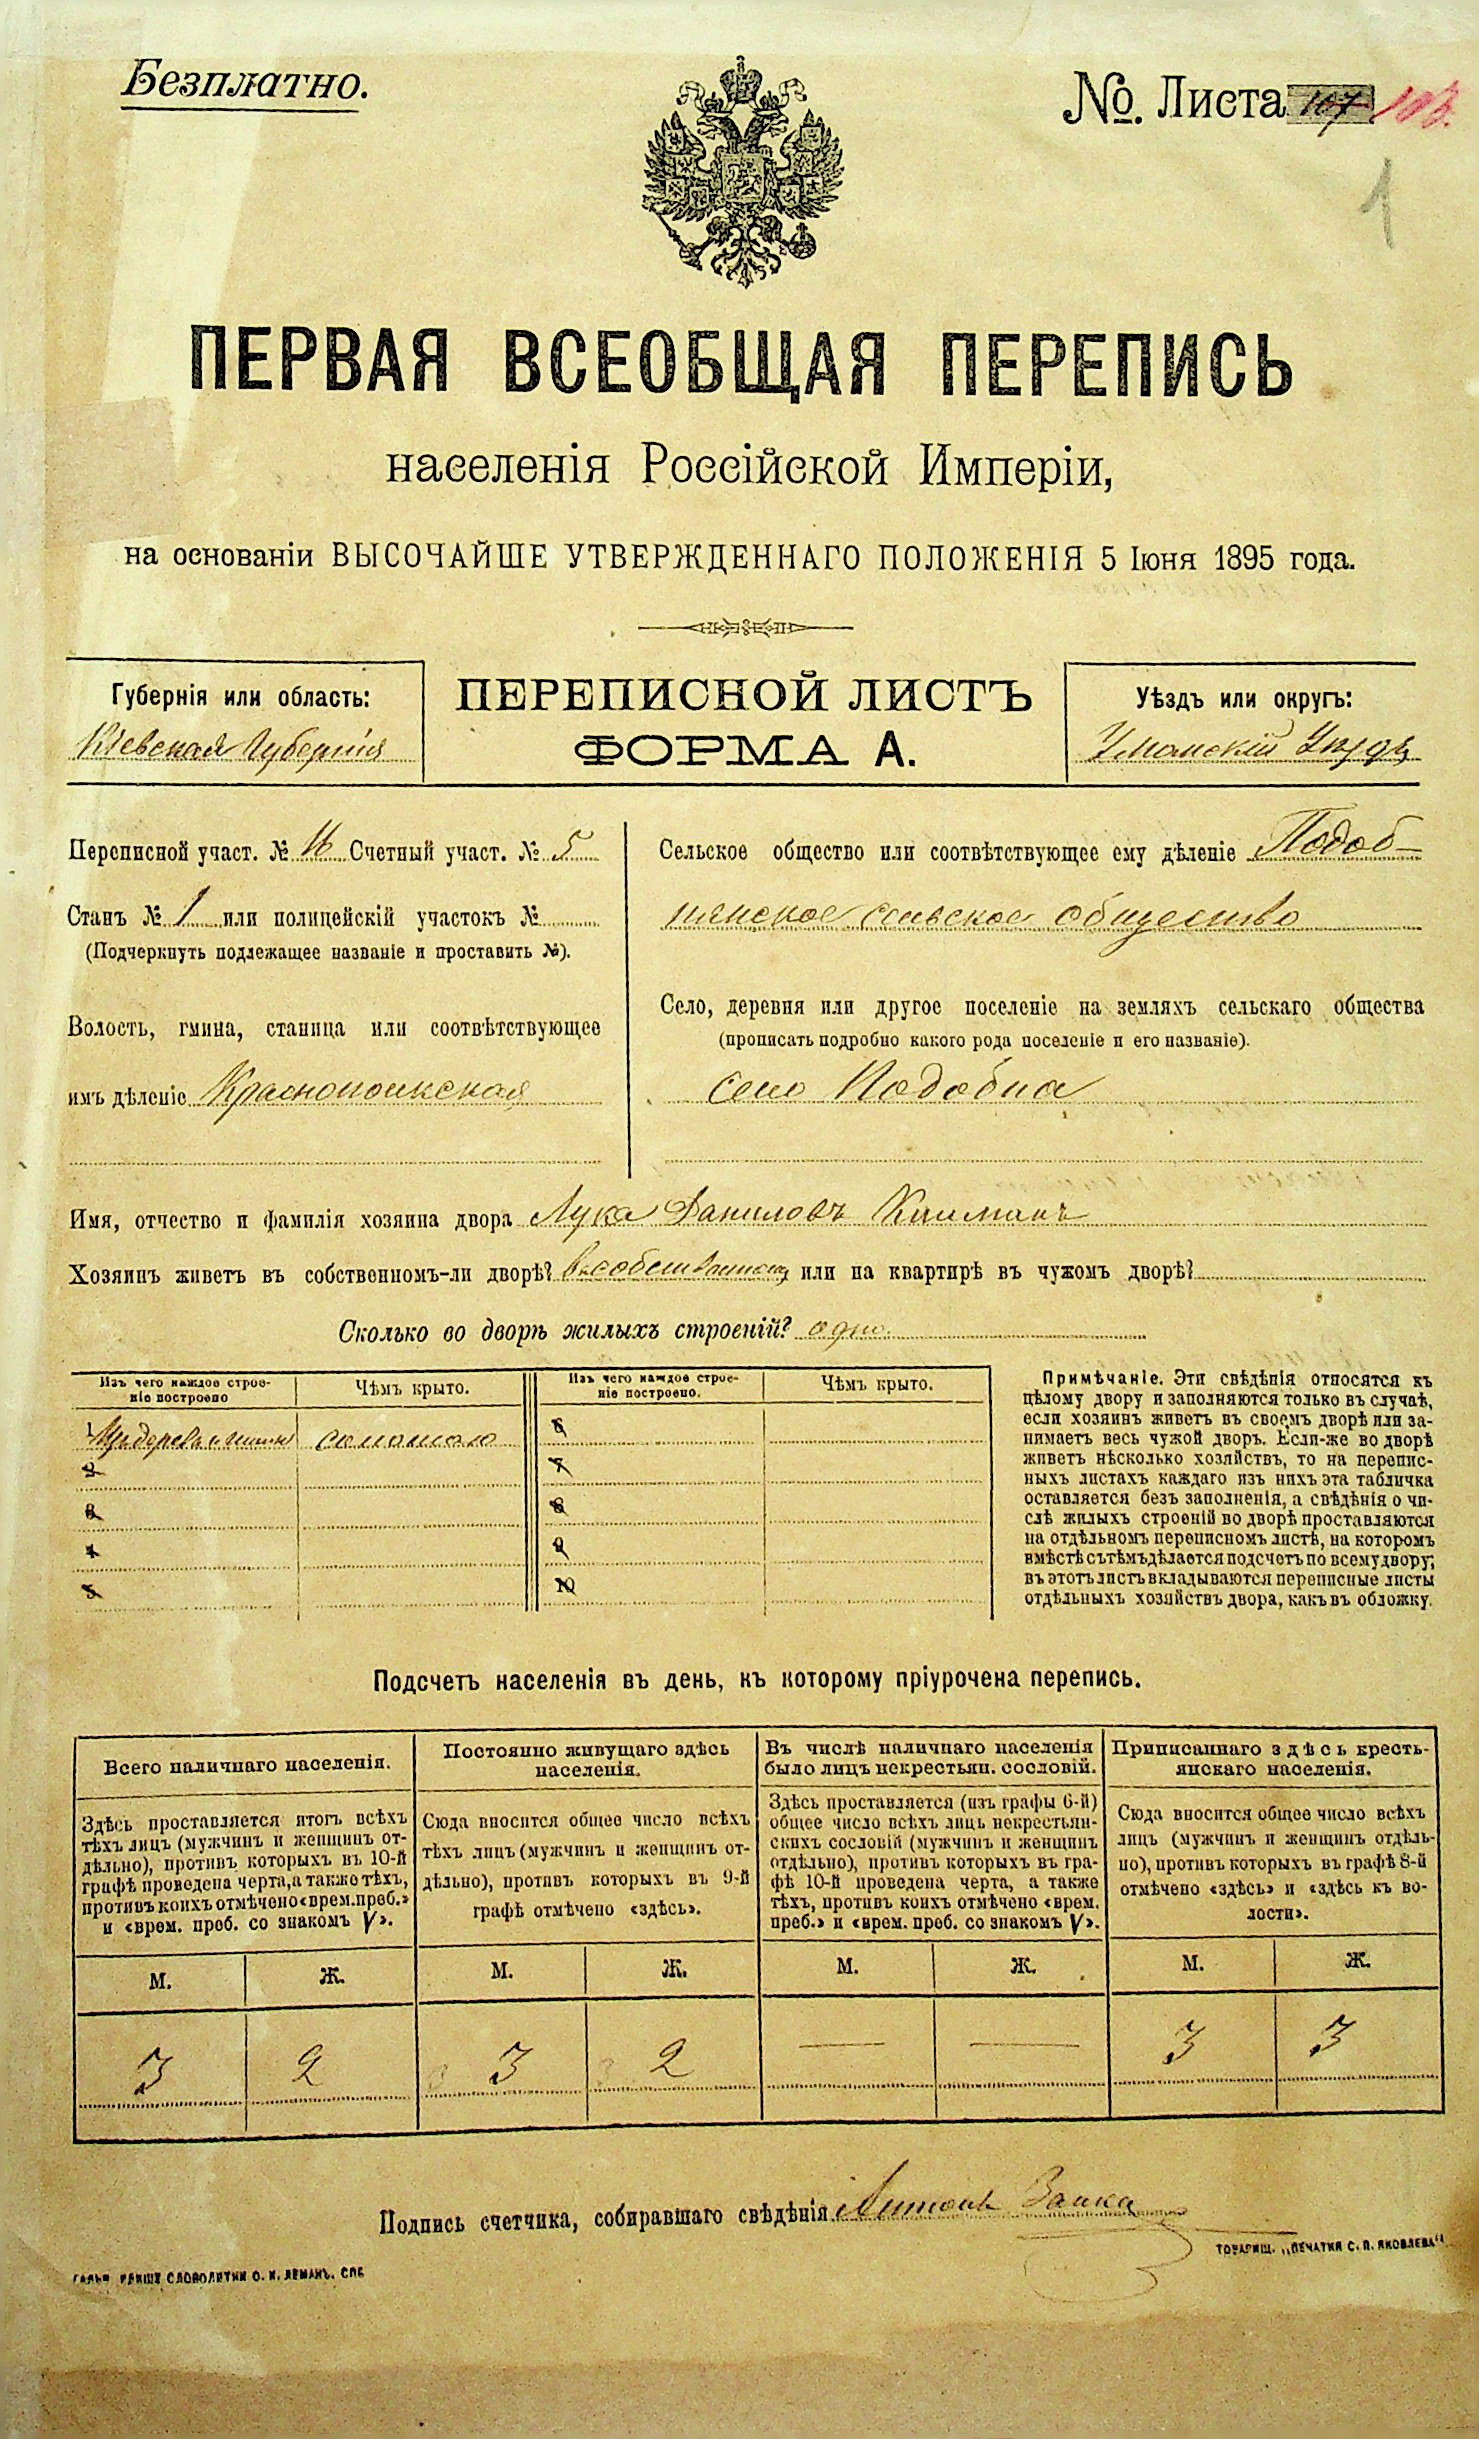 Безплатно.
№. Листа 107 103.
1
ПЕРВАЯ ВСЕОБЩАЯ ПЕРЕПИСЬ
населенія Россійской Имперіи,
на основаніи ВЫСОЧАЙШЕ УТВЕРЖДЕННАГО ПОЛОЖЕНІЯ 5 Іюня 1895 года.
Губернія или область:
Кіевская Губернія
ПЕРЕПИСНОЙ ЛИСТЪ
ФОРМА А.
Уѣздъ или округъ:
Уманскій Уѣздъ
Переписной участ. № Счетный участ. № 5
Станъ № 1 или полицейскій участокъ №
(Подчеркнуть подлежащее названіе и проставить №).
Волость, гмина, станица или соотвѣтствующее
имъ дѣленіе Краснопольская
Сельское общество или соотвѣтствующее ему дѣленіе Подоб-
нянское сельское общество
Село, деревня или другое поселеніе на земляхъ сельскаго общества
(прописать подробно какого рода поселеніе и его названіе).
село Подобна
Имя, отчество и фамилія хозяина двора Лука Даниловъ
Хозяинъ живетъ въ собственномъ-ли дворѣ? въ собственномъ или на квартирѣ въ чужомъ дворѣ?
Сколько во дворѣ жилыхъ строеній? одно.
Изъ чего каждое строе-
ніе построено
Чѣмъ крыто.
Изъ чего каждое строе-
ніе построено.
Чѣмъ крыто.
1 Изъ дерева и глины соломою
2
3
4
5
6
7
8
9
10
Примѣчаніе. Эти свѣдѣнія относятся къ
цѣлому двору и заполняются только въ случаѣ,
если хозяинъ живетъ въ своемъ дворѣ или за-
нимаетъ весь чужой дворъ. Если-же во дворѣ
живетъ нѣсколько хозяйствъ, то на перепис-
ныхъ листахъ каждаго изъ нихъ эта табличка
оставляется безъ заполненія, а свѣдѣнія о чи-
слѣ жилыхъ строеній во дворѣ проставляются
на отдѣльномъ переписномъ листѣ, на которомъ
вмѣстѣ съ тѣмъ дѣлается подсчетъ по всему двору;
въ этотъ листъ вкладываются переписные листы
отдѣльныхъ хозяйствъ двора, какъ въ обложку.
Подсчетъ населенія въ день, къ которому пріурочена перепись.
Всего наличнаго населенія.
Здѣсь проставляется итогъ всѣхъ
тѣхъ лицъ (мужчинъ и женщинъ от-
дѣльно), противъ которыхъ въ 10-й
графѣ проведена черта, а также тѣхъ,
противъ коихъ отмѣчено «врем. преб.»
и «врем. преб. со знакомъ V».
Постоянно живущаго здѣсь
населенія.
Сюда вносится общее число всѣхъ
тѣхъ лицъ (мужчинъ и женщинъ от-
дѣльно), противъ которыхъ въ 9-й
графѣ отмѣчено «здѣсь».
Въ числѣ наличнаго населенія
было лицъ некрестьян. сословій.
Здѣсь проставляется (изъ графы 6-й)
общее число всѣхъ лицъ некрестьян-
скихъ сословій (мужчинъ и женщинъ
отдѣльно), противъ которыхъ въ гра-
фѣ 10-й проведена черта, а также
тѣхъ, противъ коихъ отмѣчено «врем.
преб.» и «врем. преб. со знакомъ V».
Приписаннаго здѣсь кресть-
янскаго населенія.
Сюда вносится общее число всѣхъ
лицъ (мужчинъ и женщинъ отдѣль-
но), противъ которыхъ въ графѣ 8-й
отмѣчено «здѣсь» и «здѣсь къ во-
лости».
М. Ж. М. Ж. М. Ж. М. Ж.
3 2 3 2 — — 3 3
Подпись счетчика, собиравшаго свѣдѣнія Антонъ Заика
СЛОВОЛИТНИ О. И. ЛЕМАНЪ. СПБ
ТОВАРИЩ. „ПЕЧАТНЯ С. П. ЯКОВЛЕВА"